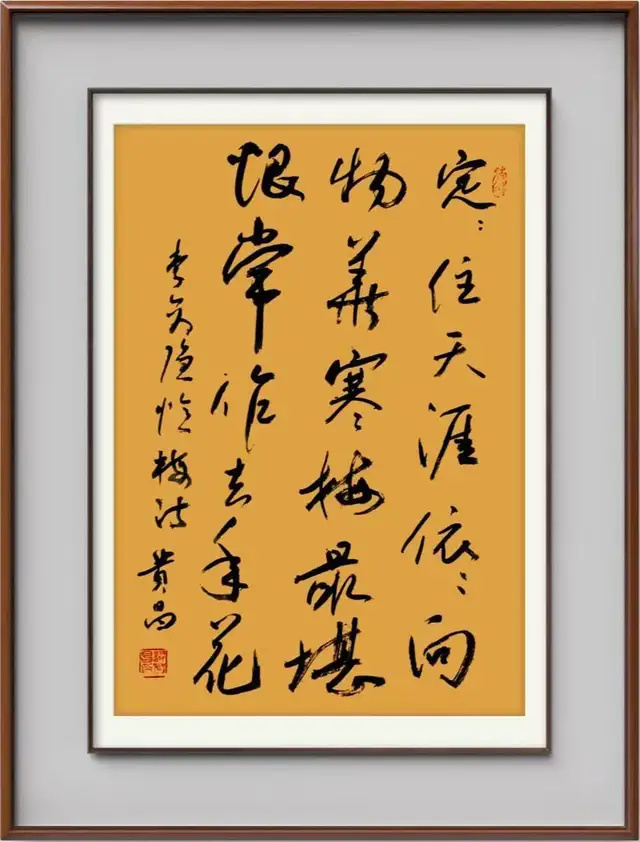 定〻住天涯依〻向
物華寒梅最堪
恨常作去年花
李商隐忆梅诗 贵昌